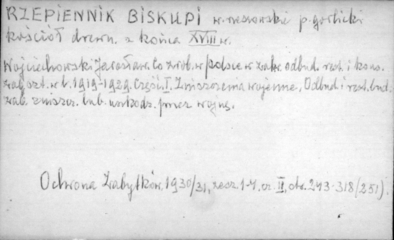 RZEPIENNIK BISKUPI w. rzeszowskie p. gorlicki
kościół drewn. z końca XVIII w.
Wojciechowski Jarosław. Co zrob. w Polsce w zakr. odbud. rest. i kons.
zab. szt. w l. 1919-1929. Część I. Zniszczenia wojenne. Odbud. i rest. bud.
zab. zniszcz. lub uszkodz. przez wojnę.
Ochrona Zabytków. 1930/31, zesz 1-4, cz II, str. 243-318 (251).